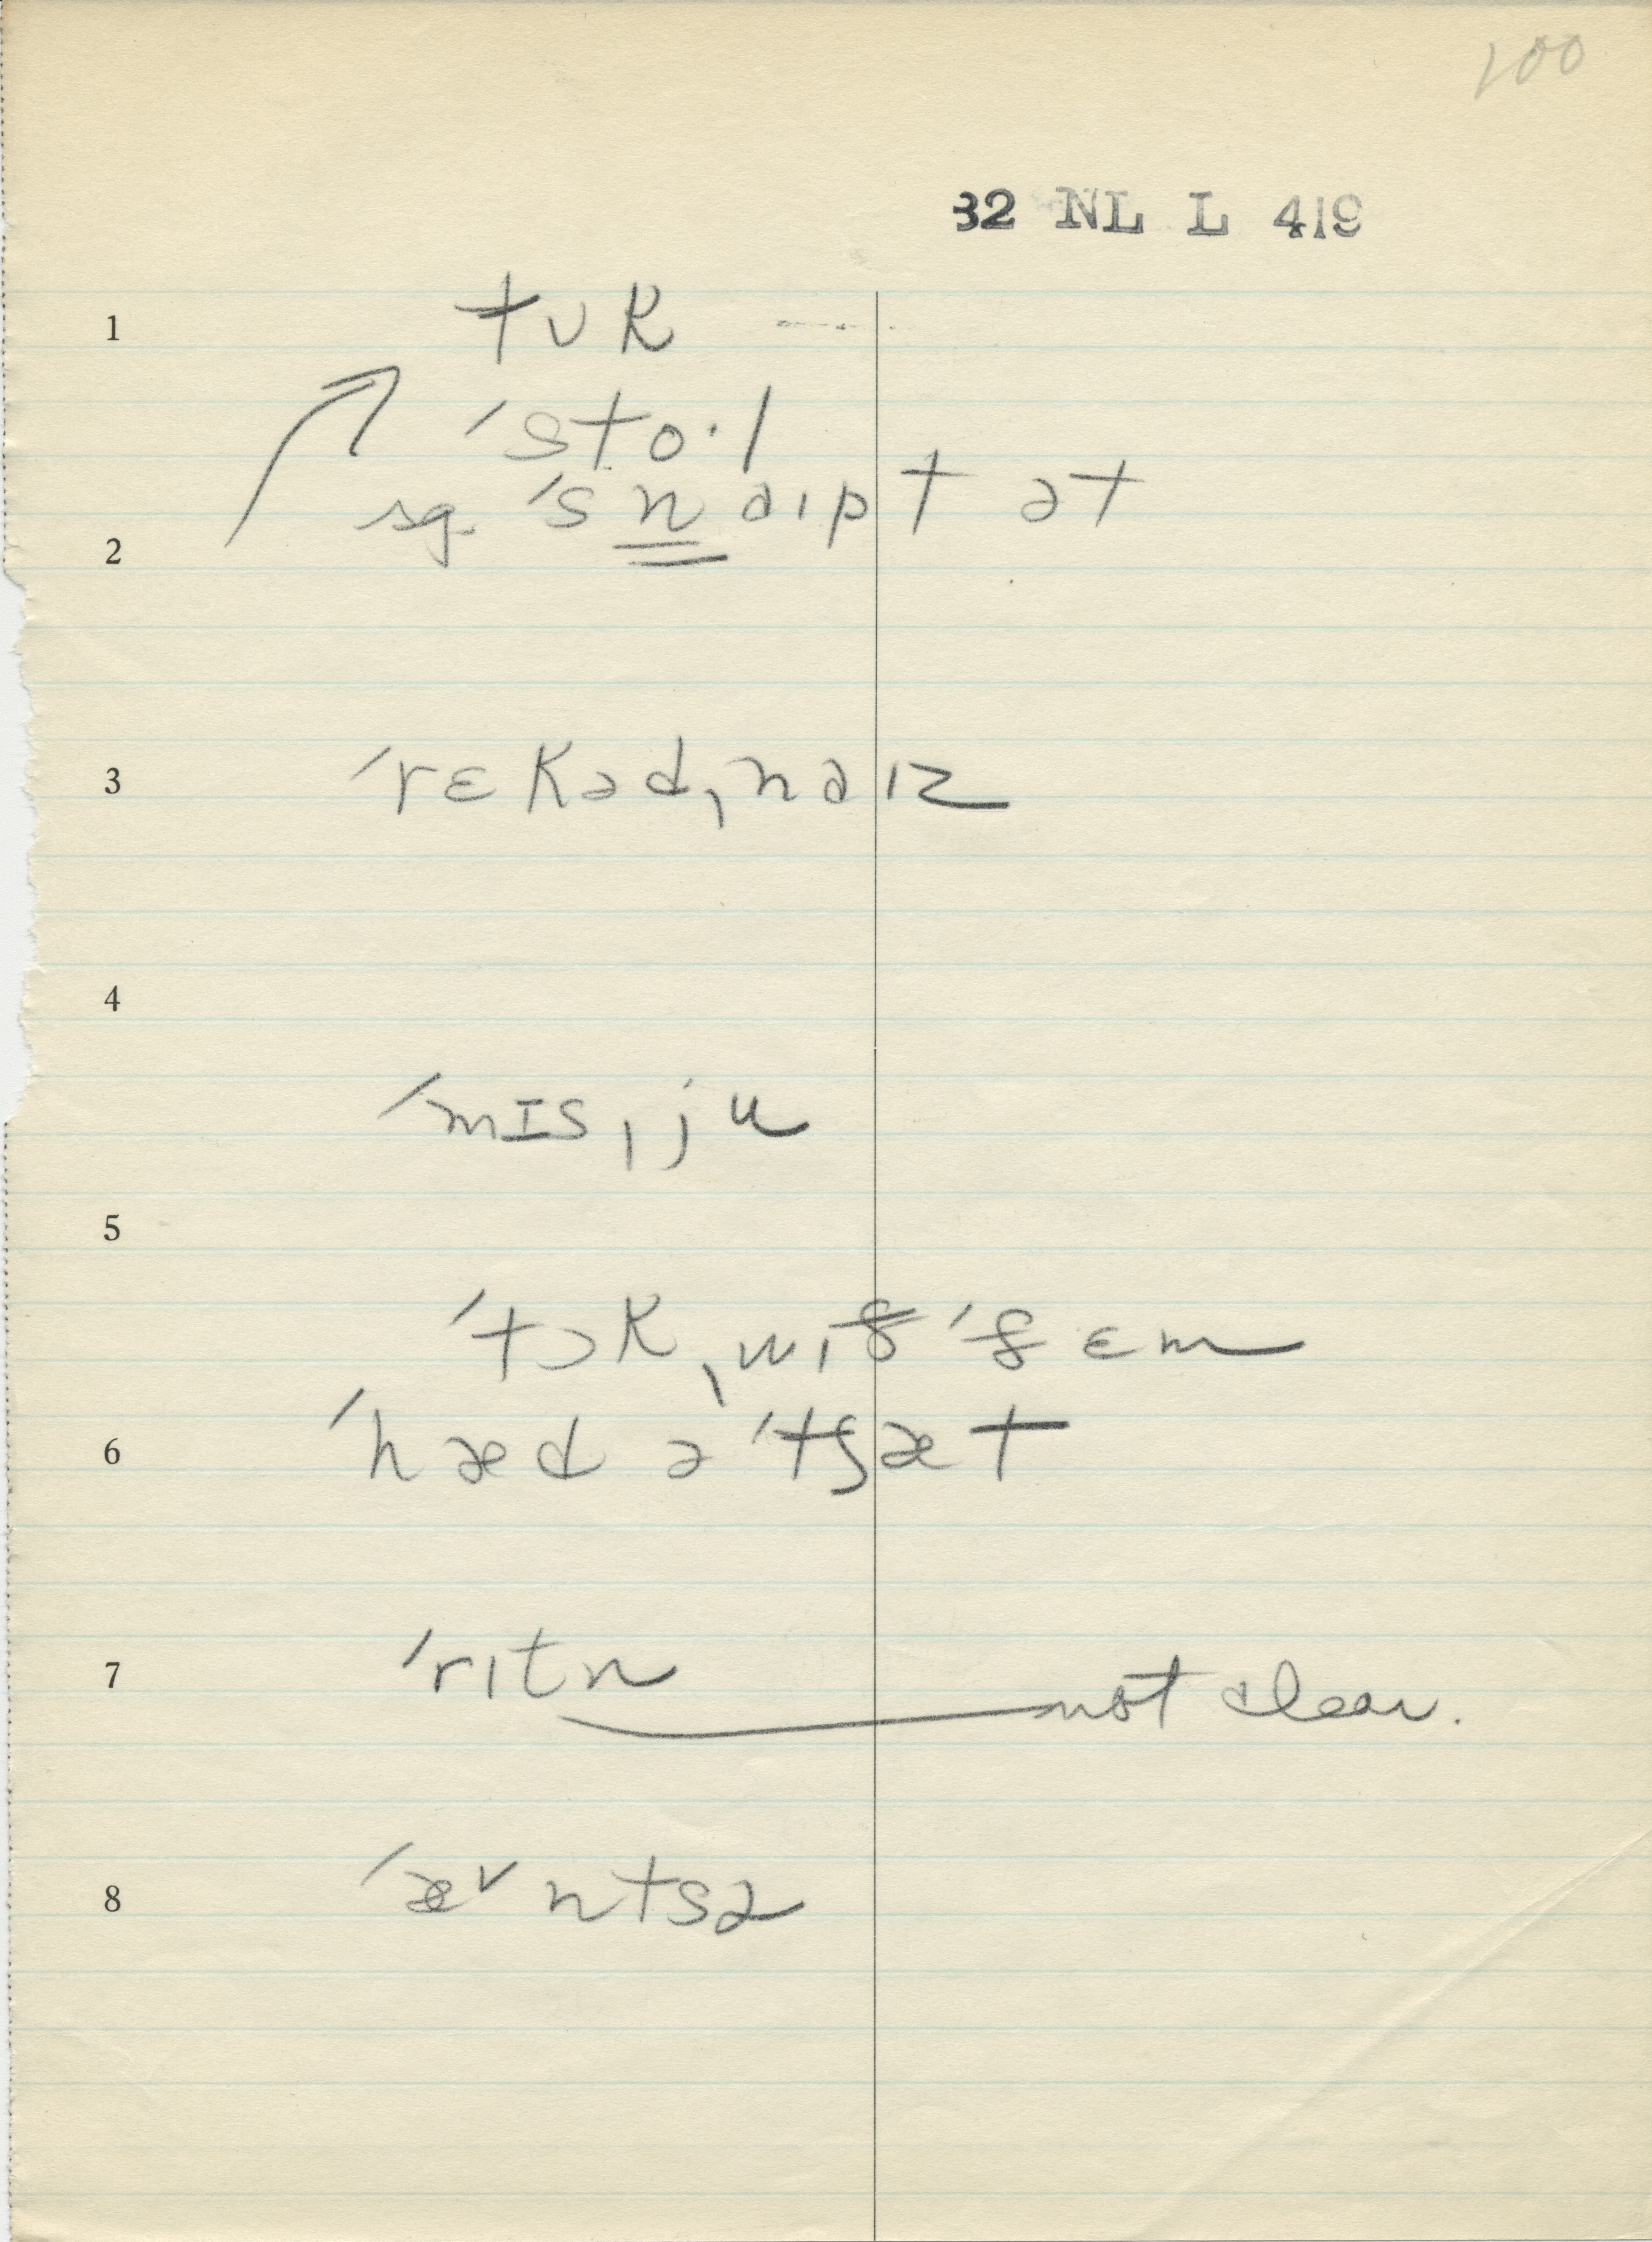 100
32 NL L 419
1 tʊk
ˈsto·l
2 sg. ˈsnaɪpt ət
3 ˈrɛkədˌnaɪz
4
ˈmɪsˌju
5
ˈtɔkˌwɪðˈðɛm
6 ˈhæd əˈtʃæt
7 ˈrɪtn not clear.
8 ˈæ˅ntsə